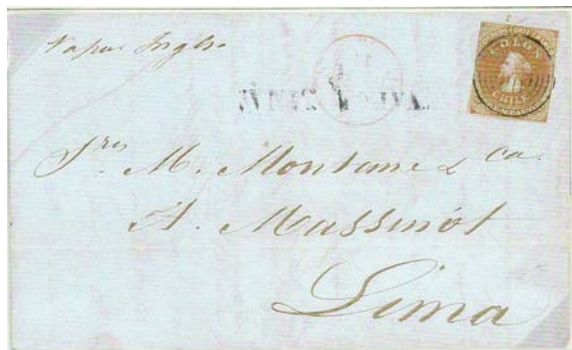 Vapor Ingles
COLON
CHILE
Sres M. Montane & ca.
A. Massenot
Lima